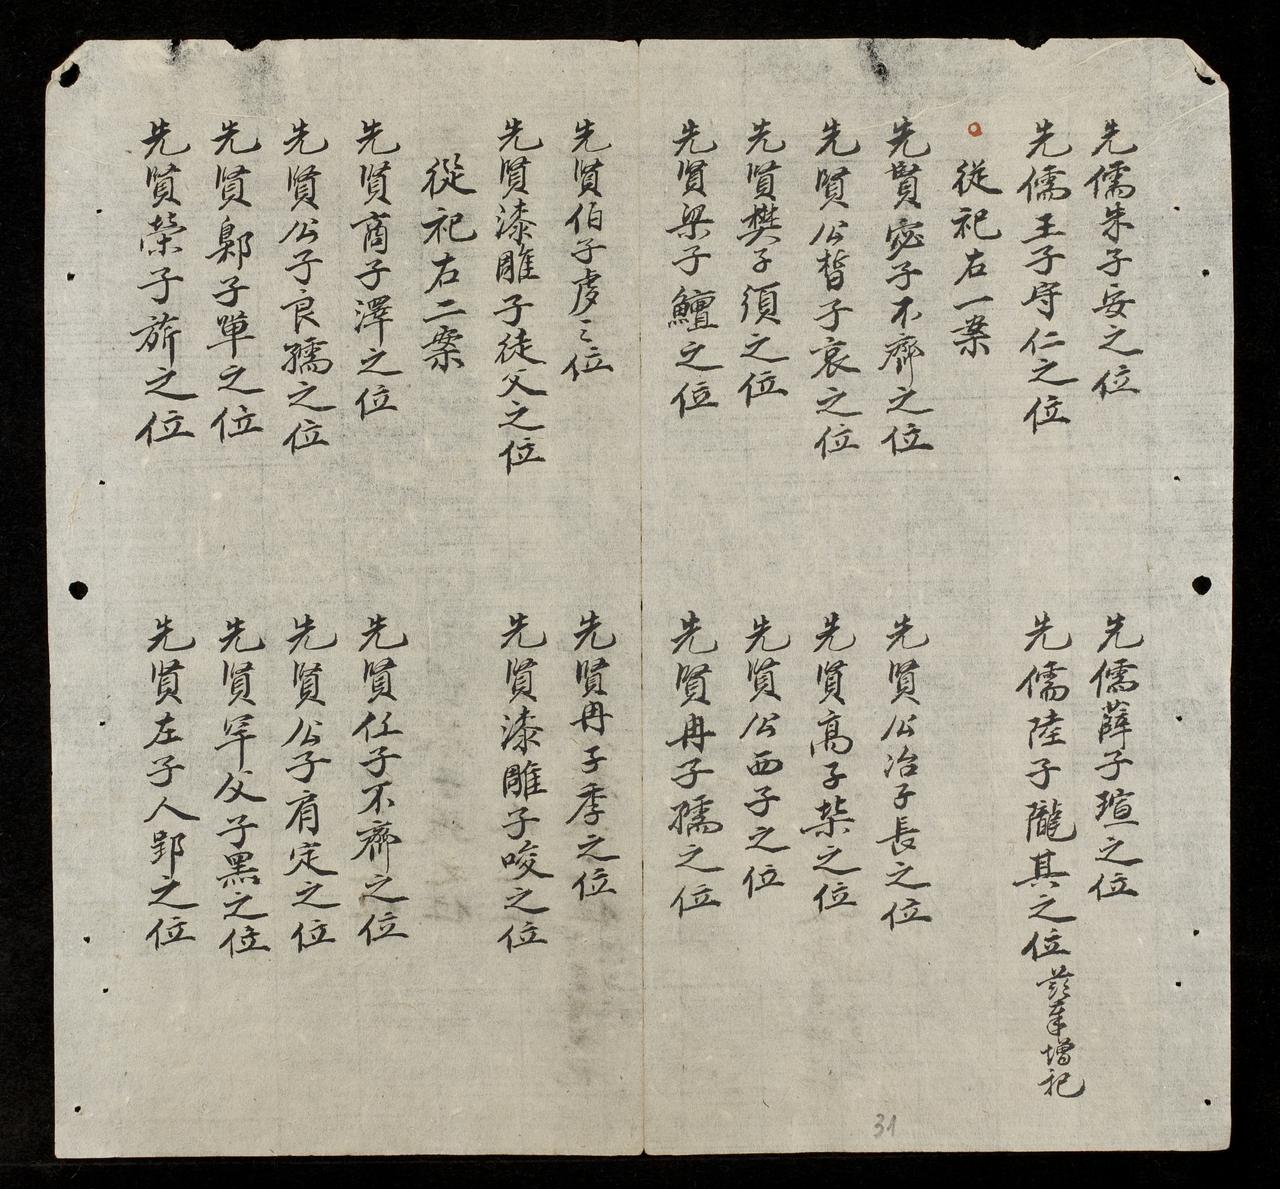 先儒朱子熹之位
先儒薛子瑄之位
先儒王子守仁之位
先儒陸子隴其之位 茲奉增祀
從祀右一案
先賢宓子不齊之位
先賢公冶子長之位
先賢公晳子哀之位
先賢高子柴之位
先賢樊子須之位
先賢公西子之位
先賢梁子鱣之位
先賢冉子孺之位
先賢伯子虔之位
先賢冉子季之位
先賢漆雕子徒父之位
先賢漆雕子哆之位
從祀右二案
先賢商子澤之位
先賢任子不齊之位
先賢公子良孺之位
先賢公子肩定之位
先賢鄡子單之位
先賢罕父子黑之位
先賢榮子旂之位
先賢左子人郢之位
31